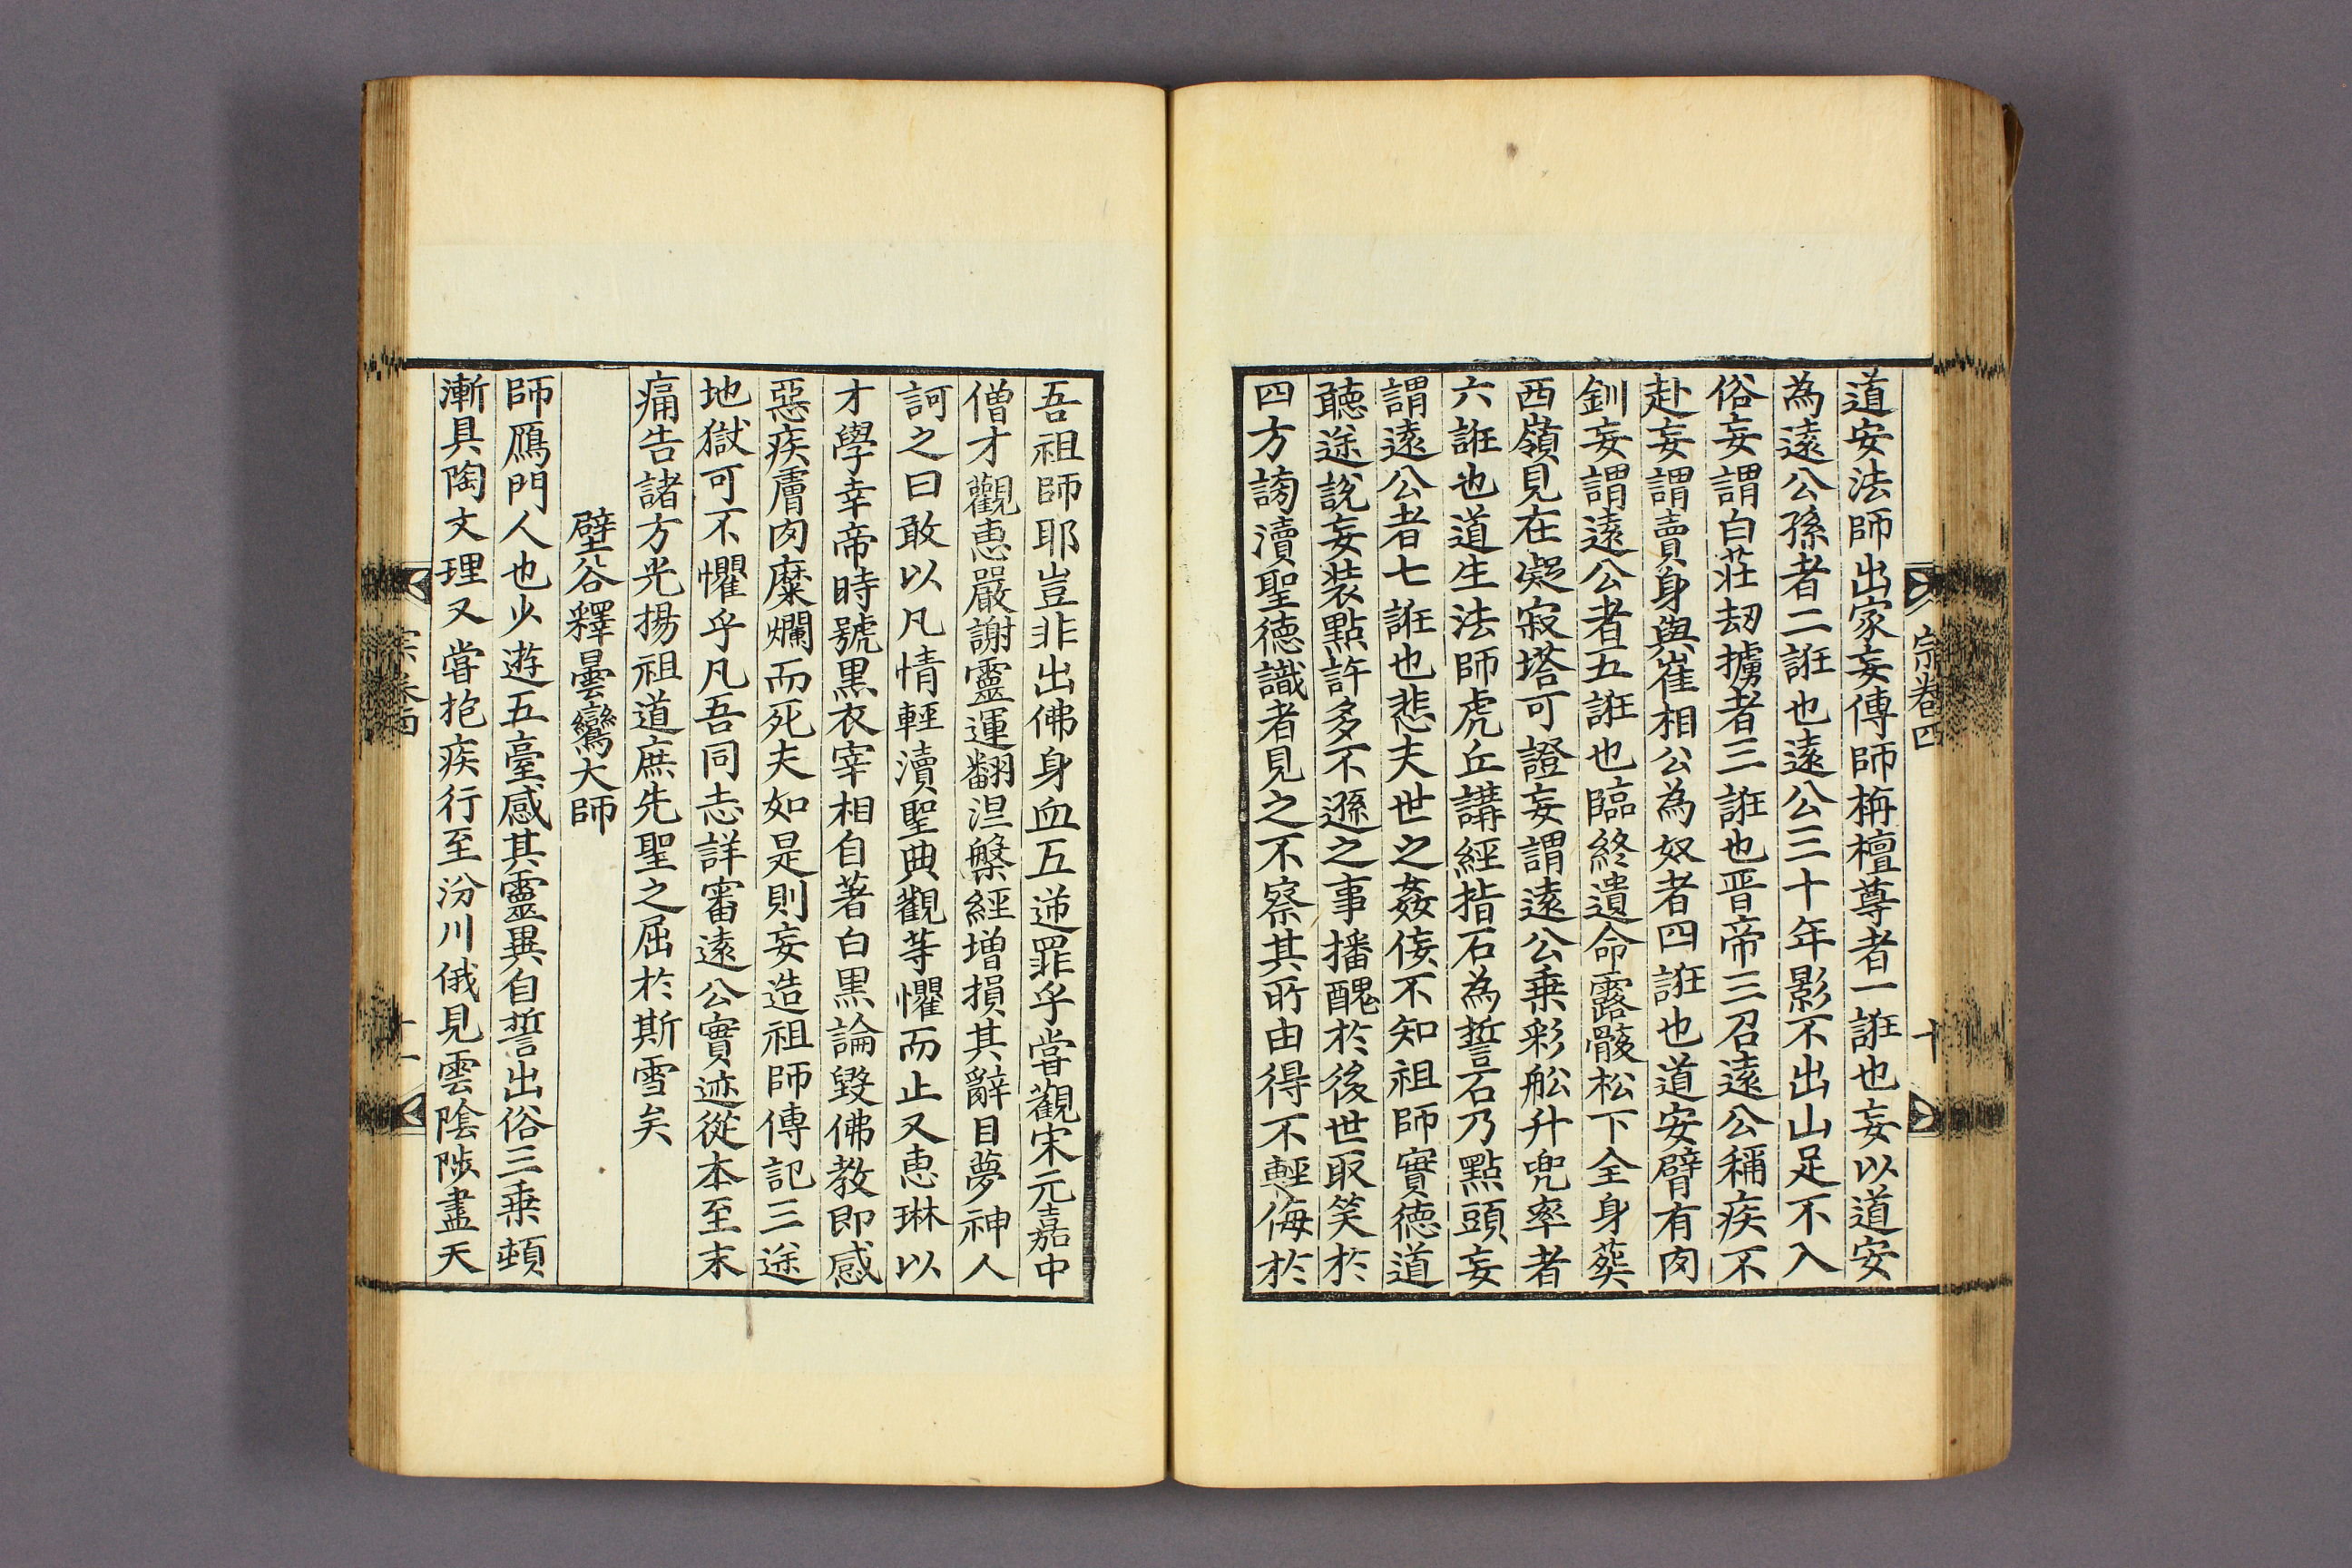 宗卷四
十
道安法師出家妄傳師栴檀尊者一誑也妄以道安
為遠公孫者二誑也遠公三十年影不出山足不入
俗妄謂白莊刼擄者三誑也晋帝三召遠公稱疾不
赴妄謂賣身與崔相公為奴者四誑也道安臂有肉
釧妄謂遠公者五誑也臨終遺命露骸松下全身葬
西嶺見在凝寂塔可證妄謂遠公乗彩舩升兜率者
六誑也道生法師虎丘講經指石為誓石乃點頭妄
謂遠公者七誑也悲夫世之姦倿不知祖師實徳道
聽途說妄裝點許多不遜之事播醜於後世取笑於
四方謗瀆聖徳識者見之不察其所由得不輕侮於
吾祖師耶豈非出佛身血五逆罪乎甞觀宋元嘉中
僧才觀恵嚴謝靈運翻涅槃經增損其辭目夢神人
訶之曰敢以凡情輕瀆聖典觀等懼而止又恵琳以
才學幸帝時號黒衣宰相自著白黒論毀佛教即感
惡疾膚肉糜爛而死夫如是則妄造祖師傳記三途
地獄可不懼乎凡吾同志詳審遠公實迹從本至末
痛告諸方光揚祖道庶先聖之屈於斯雪矣
壁谷釋曇鸞大師
師鴈門人也少遊五臺感其靈異自誓出俗三乗頓
漸具陶文理又甞抱疾行至汾川俄見雲陰陟盡天
宗卷四
十一